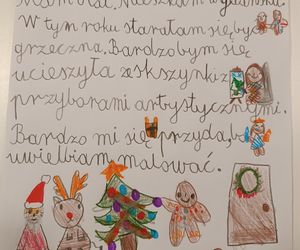 Mieszkam w
W tym roku starałam się być
grzeczna. Bardzo bym się
ucieszyła ze skszynki z
przyborami artystycznymi.
Bardzo mi się przyda, bo
uwielbiam malować.